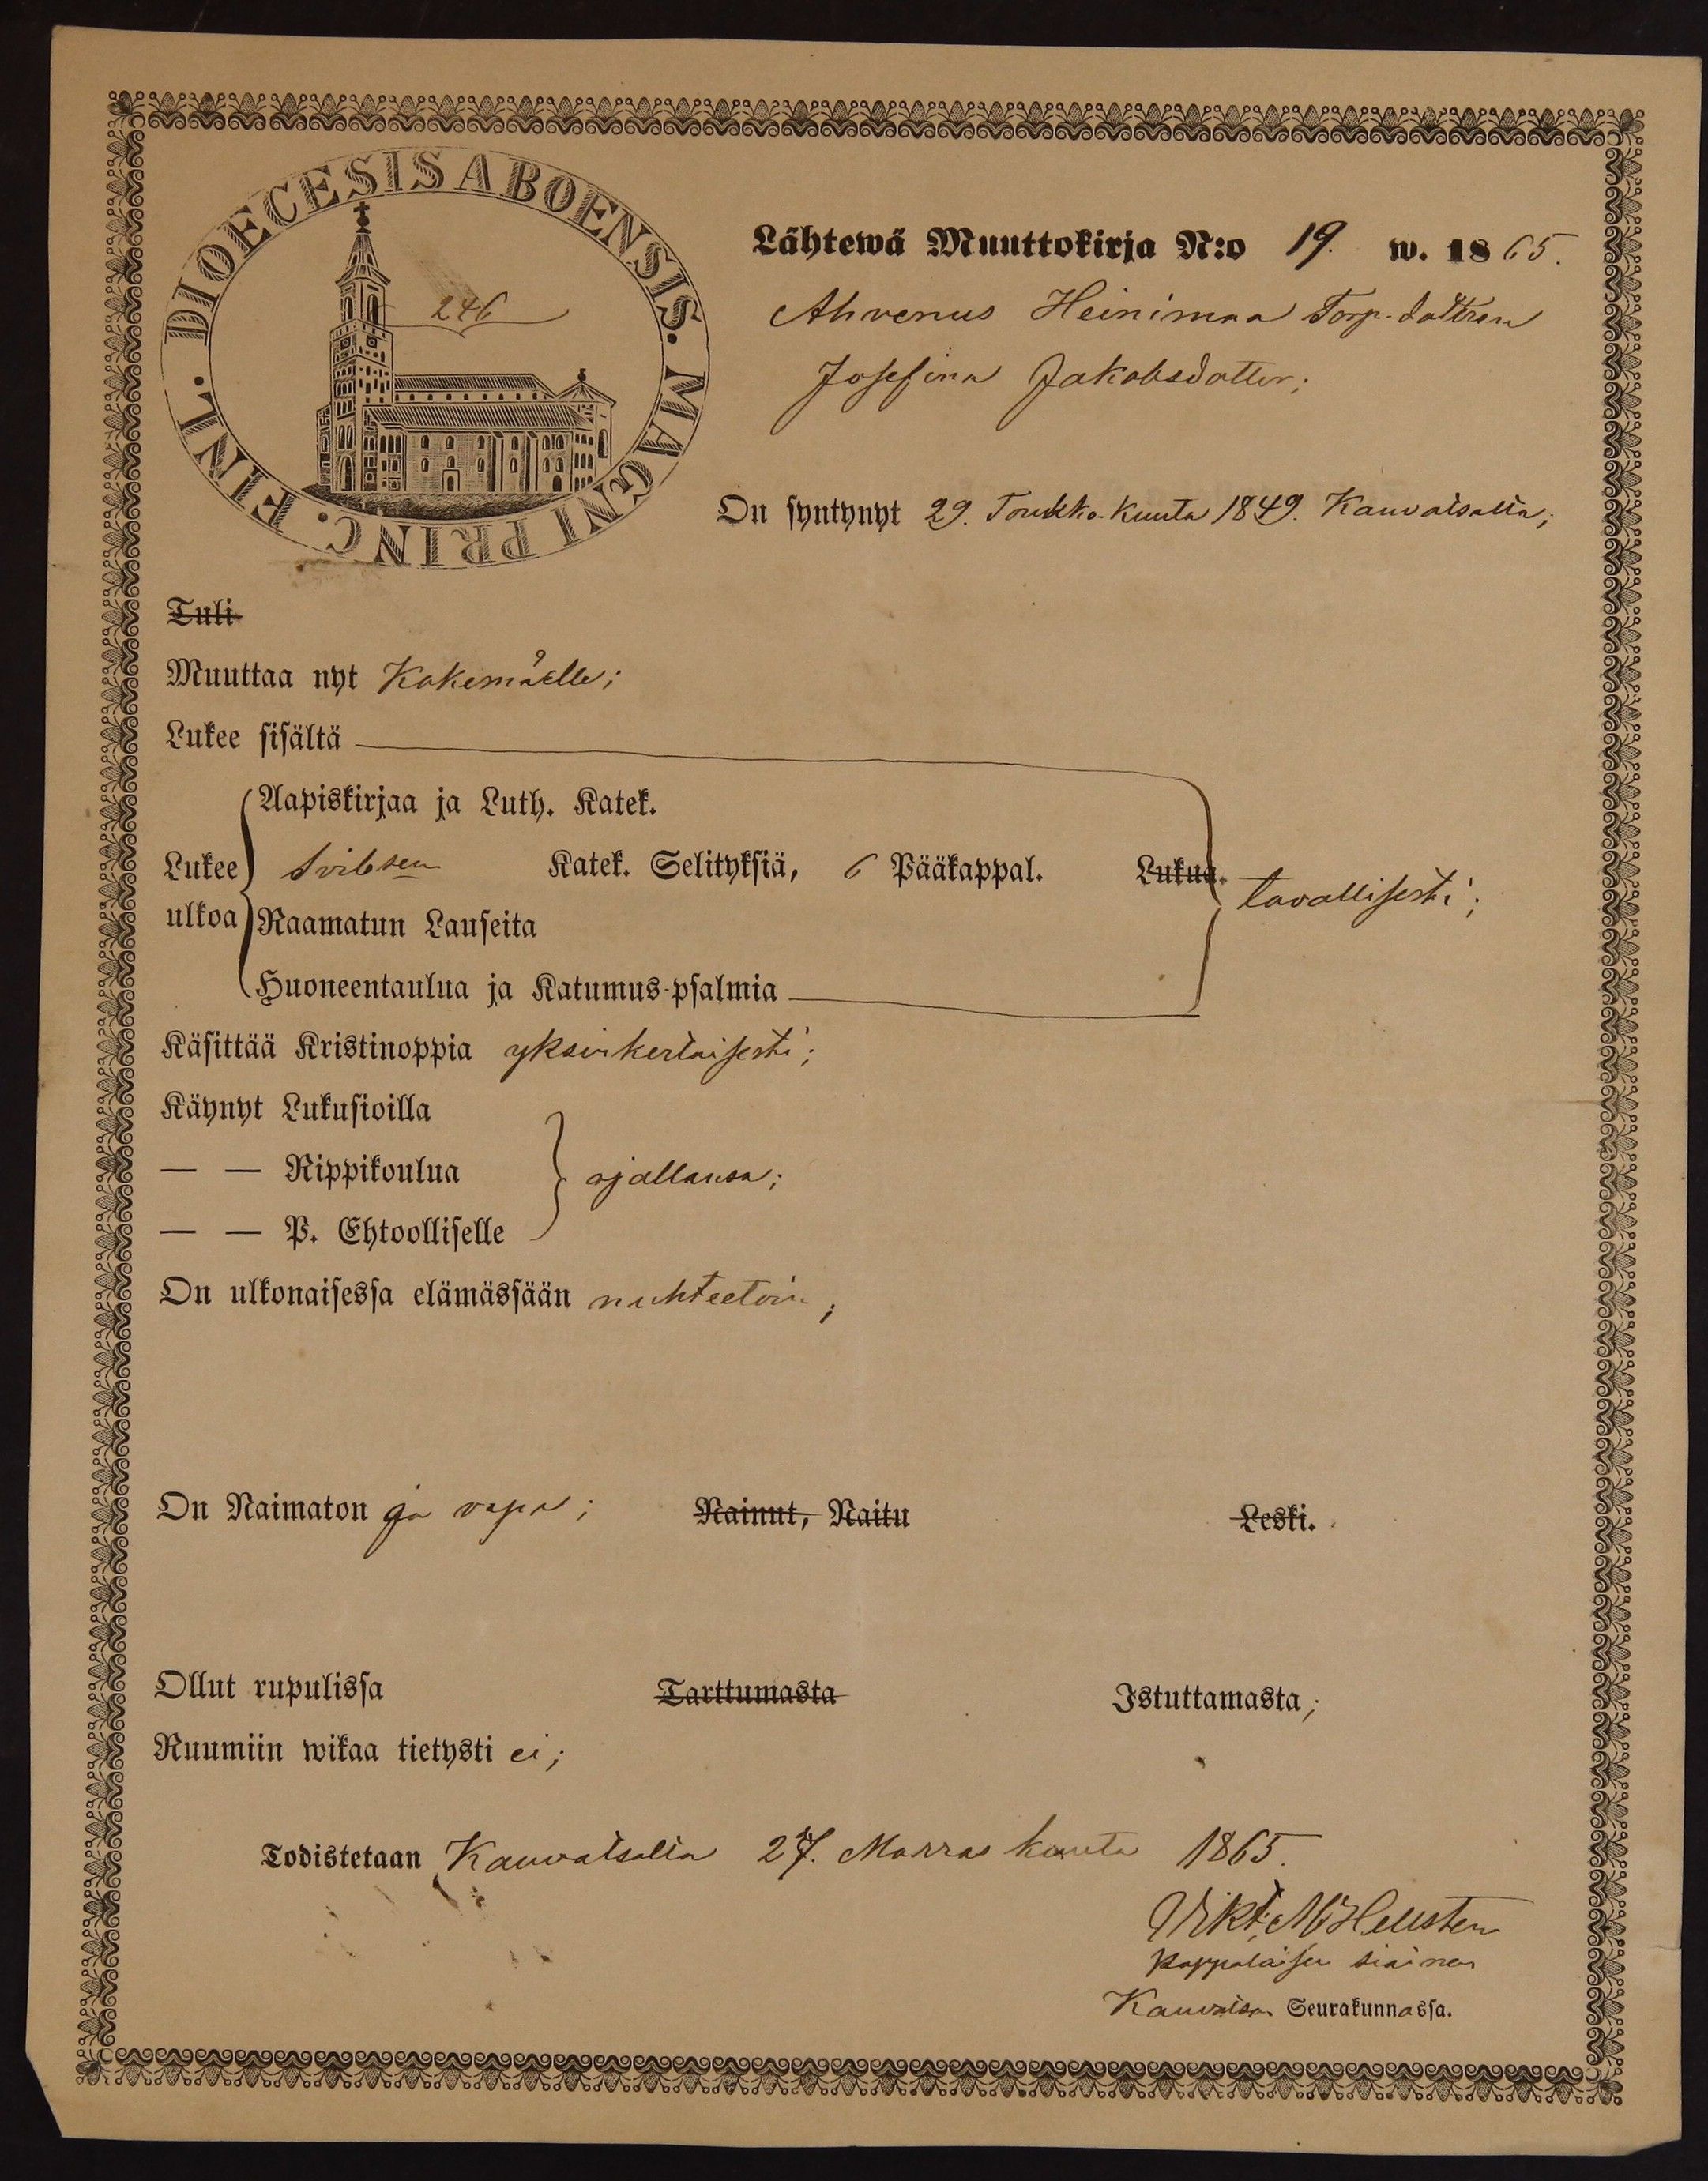 DIOECESIS ABOENSIS. MAGNI PRINC. FINL.
246
Lähtewä Muuttokirja N:o 19. w. 1865.
Ahvenus Heinimaa Torp. dottren
Josefina Jakobsdotter;
On syntynyt 29. Toukko-kuuta 1849. Kauvatsalla;
Tuli
Muuttaa nyt Kokemäelle;
Lukee sisältä
Aapiskirjaa ja Luth. Katek.
Lukee ulkoa Svib:sen Katek. Selityksiä, 6 Pääkappal. Lukua.
tavallisesti;
Raamatun Lauseita
Huoneentaulua ja Katumus-psalmia
Käsittää Kristinoppia yksinkertaisesti;
Käynyt Lukusioilla
— — Rippikoulua ajallansa;
— — P. Ehtoolliselle
On ulkonaisessa elämässään nuhteetoin;
On Naimaton ja vapa; Nainut, Naitu Leski.
Ollut rupulissa Tarttumasta Istuttamasta;
Ruumiin wikaa tietysti ei;
Todistetaan Kauvatsalla 27. Marras kuuta 1865.
Vikt. M Hellsten
Kappalaisen siainen
Kauvatsan Seurakunnassa.